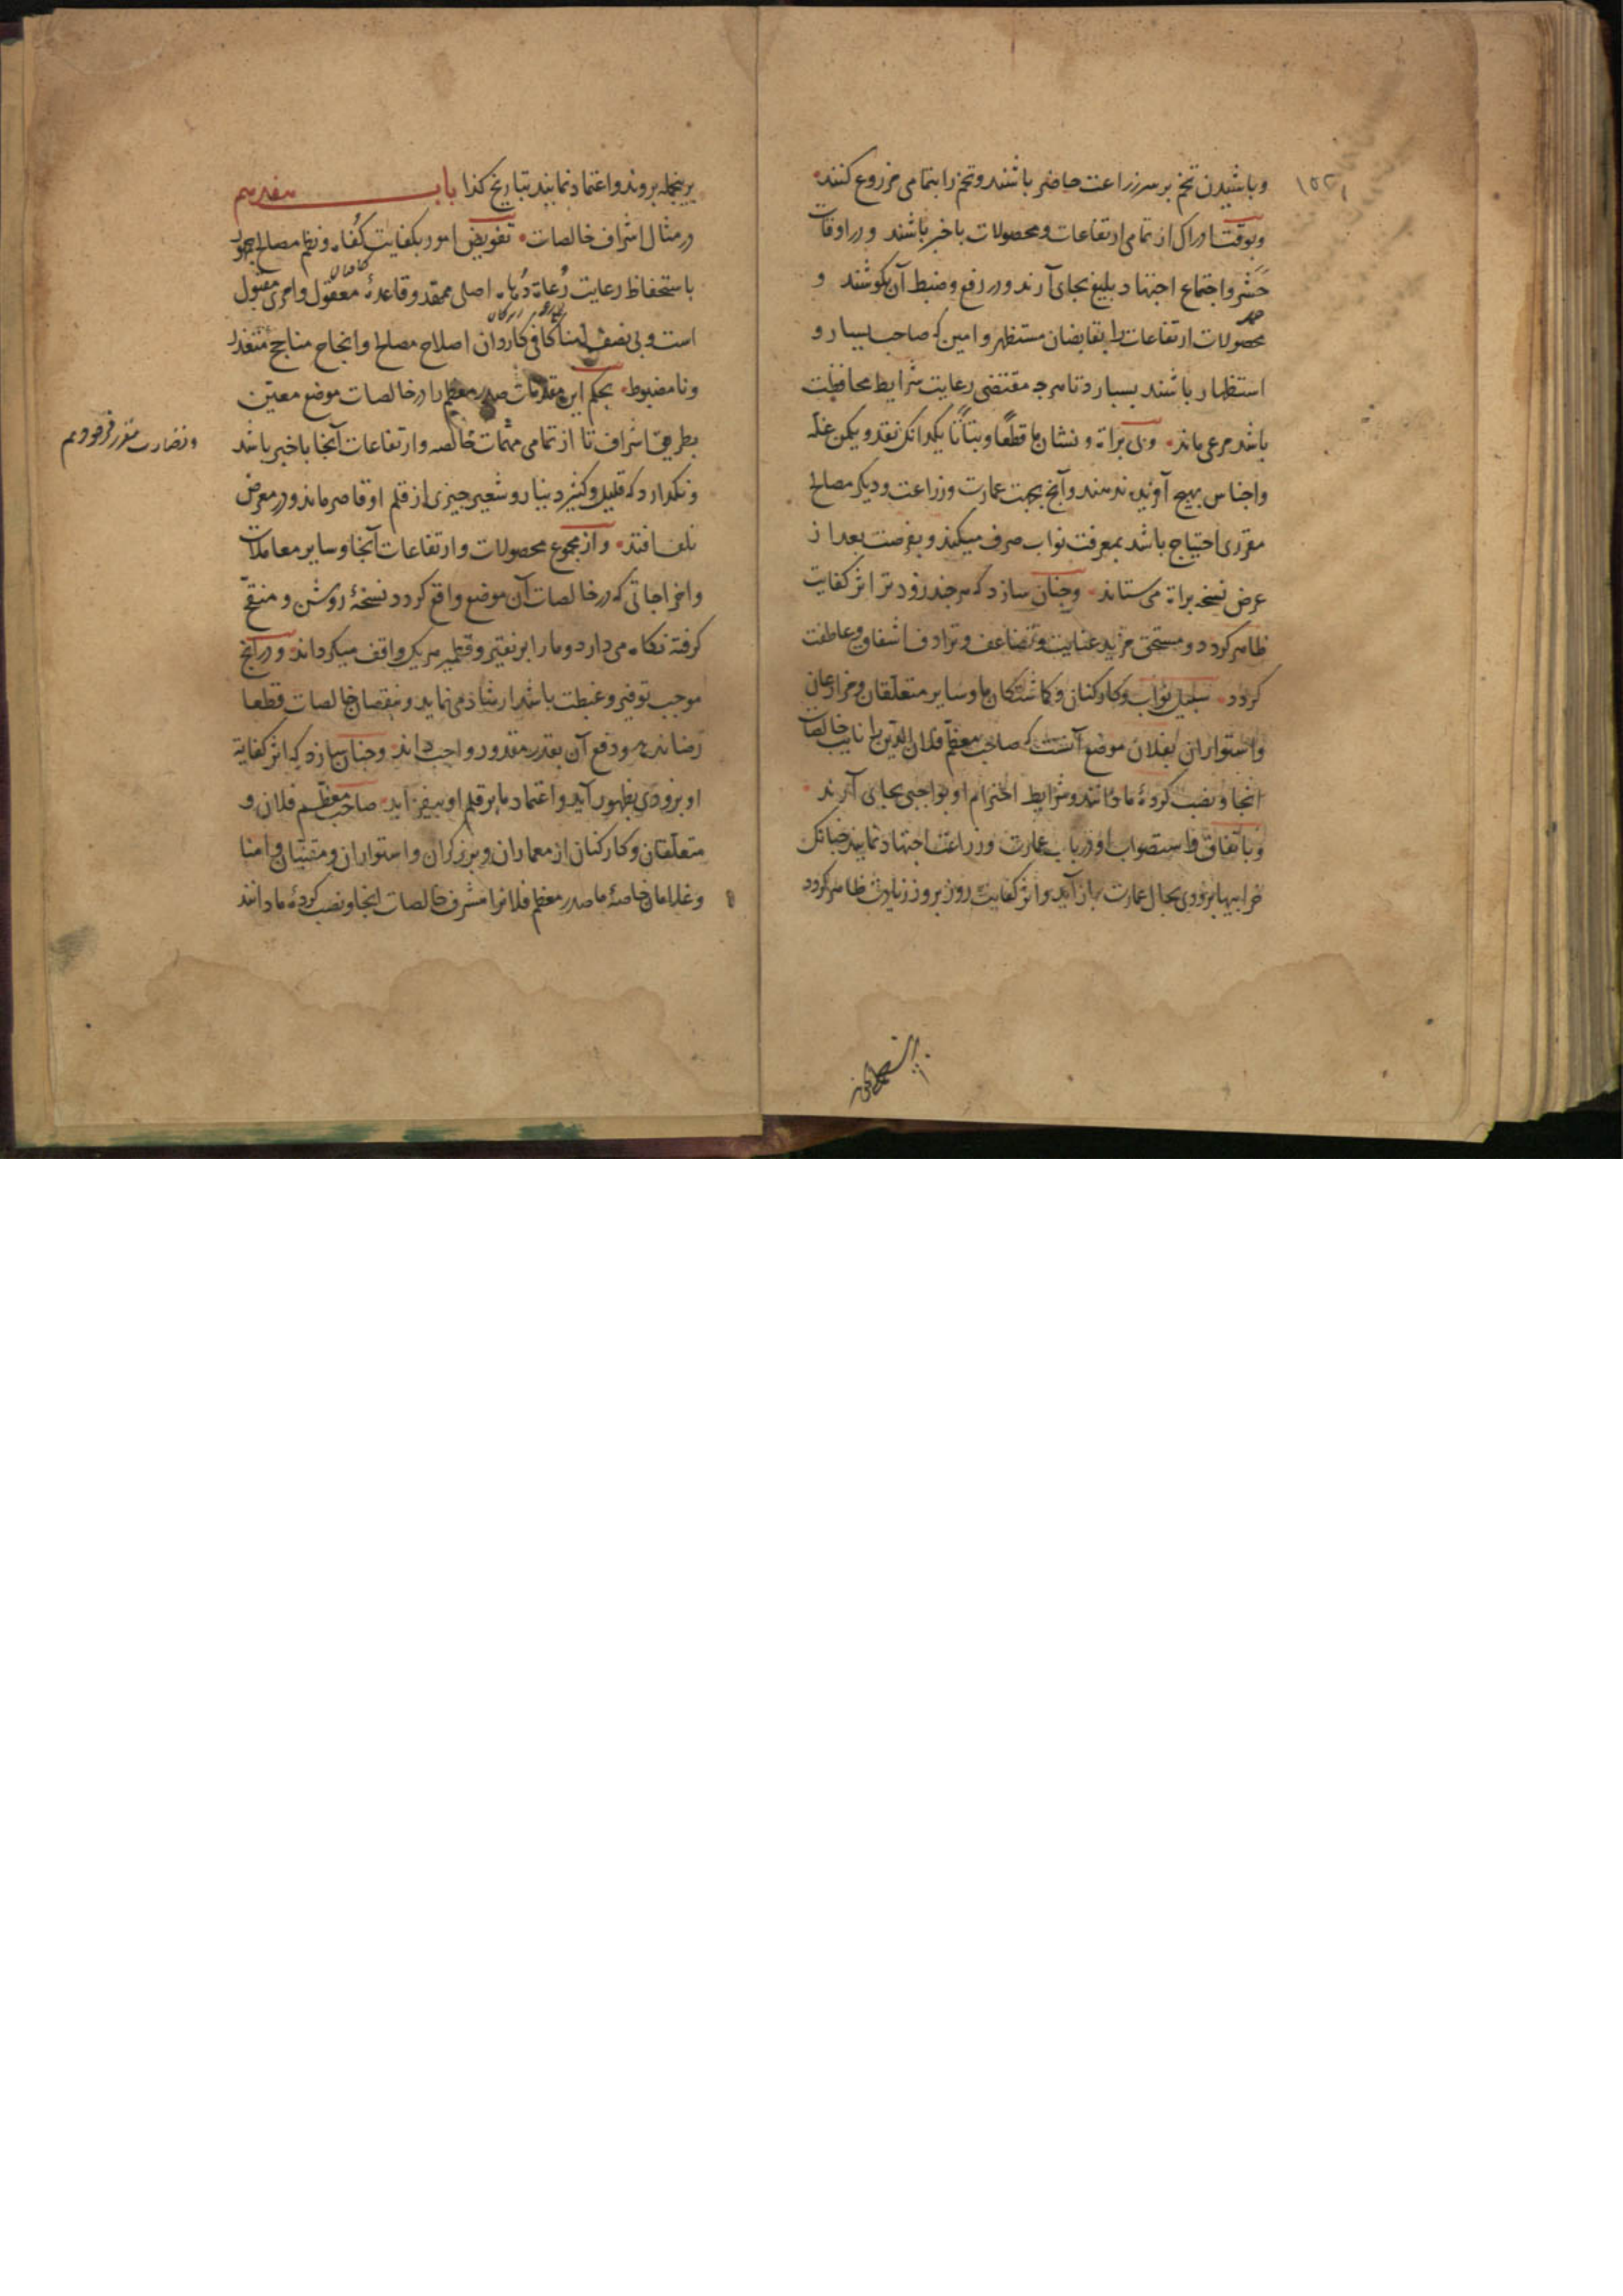 ۱۵۲
وباشیدن تخم بر سر زراعت حاضر باشند وتخم را بتمامی مزروع کنند
وبوقت ادراک از تمامی ارتفاعات ومحصولات باخبر باشند ودر اوقات
حشر واجتماع اجتهاد بلیغ بجای آرند ودر رفع وضبط آن بکوشند و
محصولات ارتفاعات را بقابضان مستظهر وامین که صاحب یسار و
استظهار باشند بسپارد تا هرچه مقتضی رعایت شرایط محافظت
باشد مرعی ماند وبی براة ونشان ما قطعاً وبتاتاً یکدانک نقد ویکمن غله
واجناس بهیچ آفریده ندهند وآنچ بجهت عمارت وزراعت ودیکر مصالح
مقرری احتیاج باشد بمعرفت نواب صرف میکند وبفرصت بعد از
عرض نسخه براة می ستاند وجنان سازد که هرجند زودتر اثر کفایت
ظاهر کردد ومستحق مزید عنایت وتضاعف وترادف اشفاق وعاطفت
کردد سبیل نواب وکارکنان وکماشتکان ما وسایر متعلقان ومزارعان
واستواران بفلان موضع آنست که صاحب معظم فلان الدین را نایب خالصات
انجا ونصب کردۀ ما دانند وشرایط احترام او بواجبی بجای آرند
وباتفاق واستصواب او در باب عمارت وزراعت اجتهاد نمایند جنانک
خرابیها بزودی بحال عمارت باز آید واثر کفایت روز بروز زیادت ظاهر کردد
برینجمله بروند واعتماد نمایند بتاریخ کذا باب هفدهم
در مثال اشراف خالصات تفویض امور بکفایت کفاه ونظم مصالح جمهور
باستحفاظ رعایت رعاة دهاه اصلی ممهد وقاعدۀ معقول وامری مقبول
است وبی نصب امنا کافی کاردان اصلاح مصالح وانجاح مناجح متعذر
ونامضبوط بحکم این مقدمات صدر معظم را در خالصات موضع معین
بطریق اشراف تا از تمامی مهمات خالصه وارتفاعات آنجا باخبر باشد
ونکذارد که قلیل وکثیر دینار وشعیر جیزی از قلم او قاصر ماند ودر معرض
تلف افتد واز مجموع محصولات وارتفاعات آنجا وسایر معاملات
واخراجاتی که در خالصات آن موضع واقع کردد نسخۀ روشن ومنقح
کرفته نکاه می دارد وما را بر نقیر وقطمیر هریک واقف میکرداند ودر آنچ
موجب توفیر وغبطت باشد ارشاد می نماید وبنقصان خالصات قطعا
رضا ندهد ودفع آن بقدر مقدور واجب داند وجنان سازد که اثر کفایة
او بزودی بظهور آید واعتماد ما بر قلم او بیفزاید صاحب معظم فلان و
متعلقان وکارکنان از معماران وبرزکران واستواران ومقنیان وامنا
وغلامان خاصۀ ما صدر معظم فلانرا مشرف خالصات انجا ونصب کردۀ ما دانند